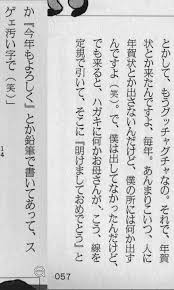 とかして、もうグッチャグチャなの。それで、年賀
状とか来たんですよ、毎年。あんまりこいつ、人に
年賀状とか出さないんだけど、僕の所には何か出す
んですよ(笑)。で、僕は出してなかったんだけど、
でも来ると、ハガキに何かお母さんが、こう、線を
定規で引いて、そこに『明けましておめでとう』と
057
か『今年もよろしく』とか鉛筆で書いてあって、ス
ゲェ汚い字で(笑)」
14